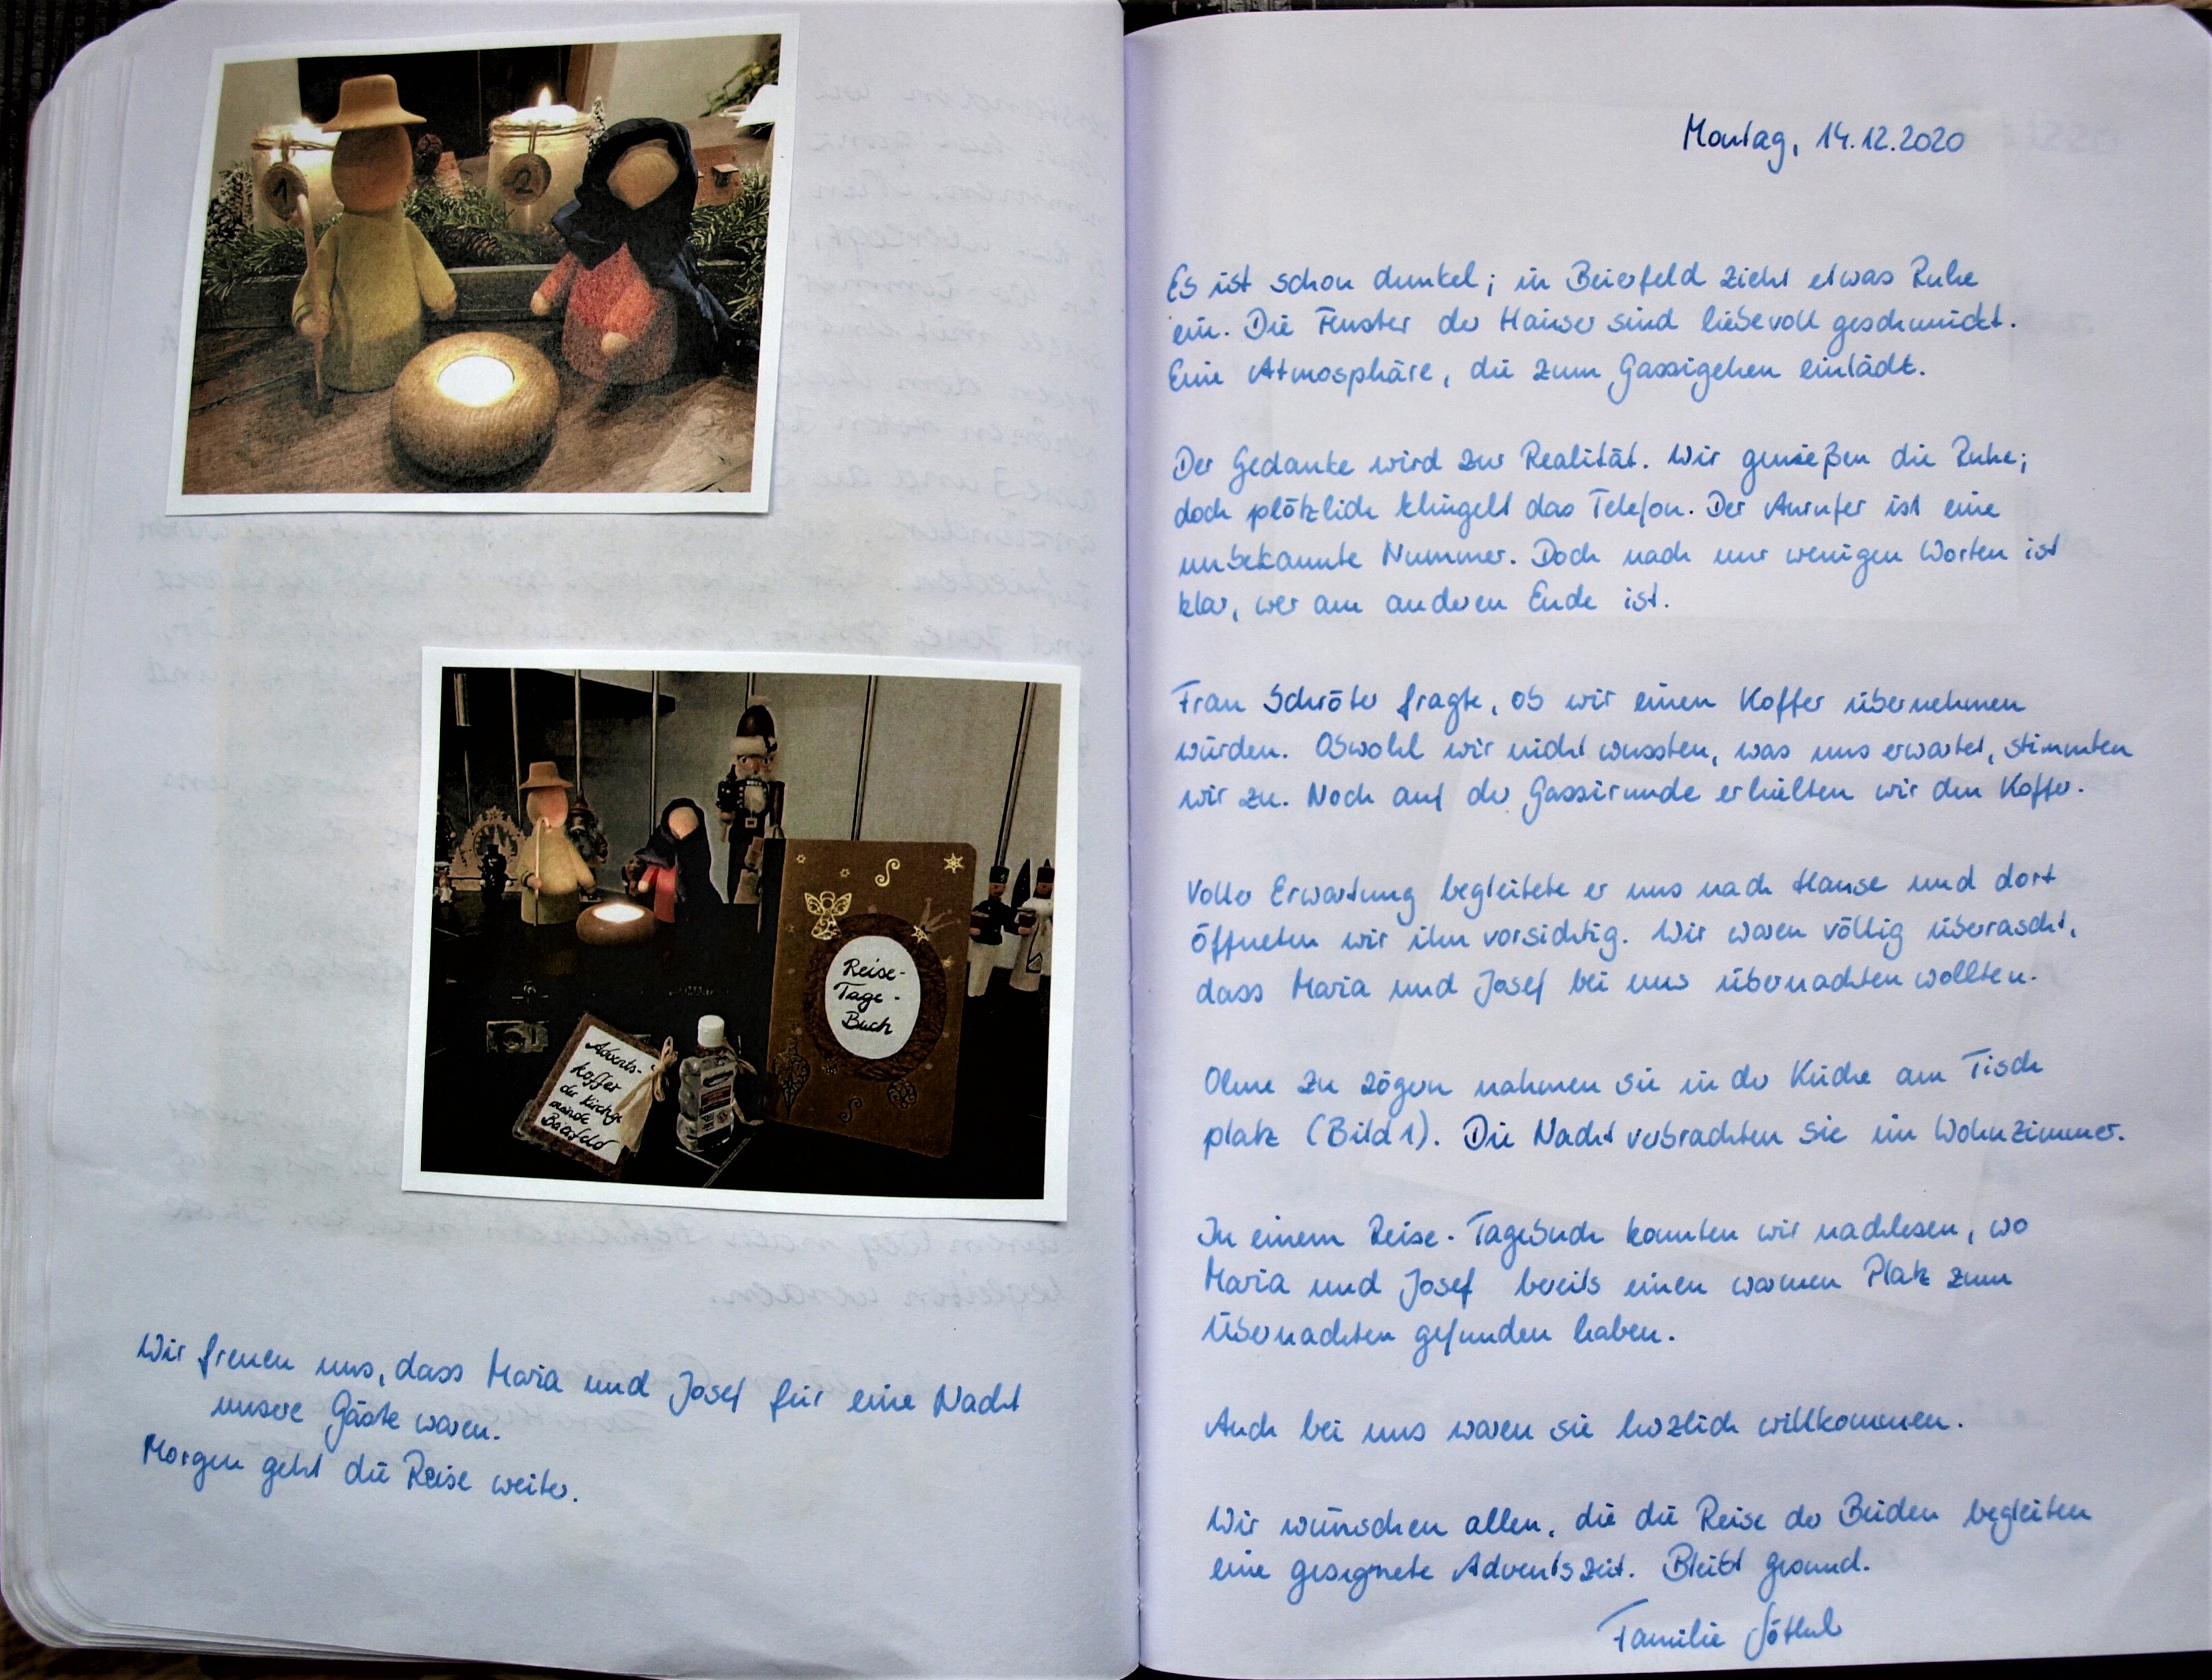 1
2
Reise-
Tage-
Buch
Advents-
koffer
der Kirchge
meinde
Beierfeld
Wir freuen uns, dass Maria und Josef für eine Nacht
unsere Gäste waren.
Morgen geht die Reise weiter.
Montag, 14.12.2020
Es ist schon dunkel; in Beierfeld zieht etwas Ruhe
ein. Die Fenster der Häuser sind liebevoll geschmückt.
Eine Atmosphäre, die zum Gassigehen einlädt.
Der Gedanke wird zur Realität. Wir genießen die Ruhe;
doch plötzlich klingelt das Telefon. Der Anrufer ist eine
unbekannte Nummer. Doch nach nur wenigen Worten ist
klar, wer am anderen Ende ist.
Frau Schröter fragte, ob wir einen Koffer übernehmen
würden. Obwohl wir nicht wussten, was uns erwartet, stimmten
wir zu. Noch auf der Gassirunde erhielten wir den Koffer.
Voller Erwartung begleitete er uns nach Hause und dort
öffneten wir ihn vorsichtig. Wir waren völlig überrascht,
dass Maria und Josef bei uns übernachten wollten.
Ohne zu zögern nahmen sie in der Küche am Tisch
platz (Bild 1). Die Nacht verbrachten sie im Wohnzimmer.
In einem Reise-Tagebuch konnten wir nachlesen, wo
Maria und Josef bereits einen warmen Platz zum
Übernachten gefunden haben.
Auch bei uns waren sie herzlich willkommen.
Wir wünschen allen, die die Reise der Beiden begleiten
eine gesegnete Adventszeit. Bleibt gesund.
Familie